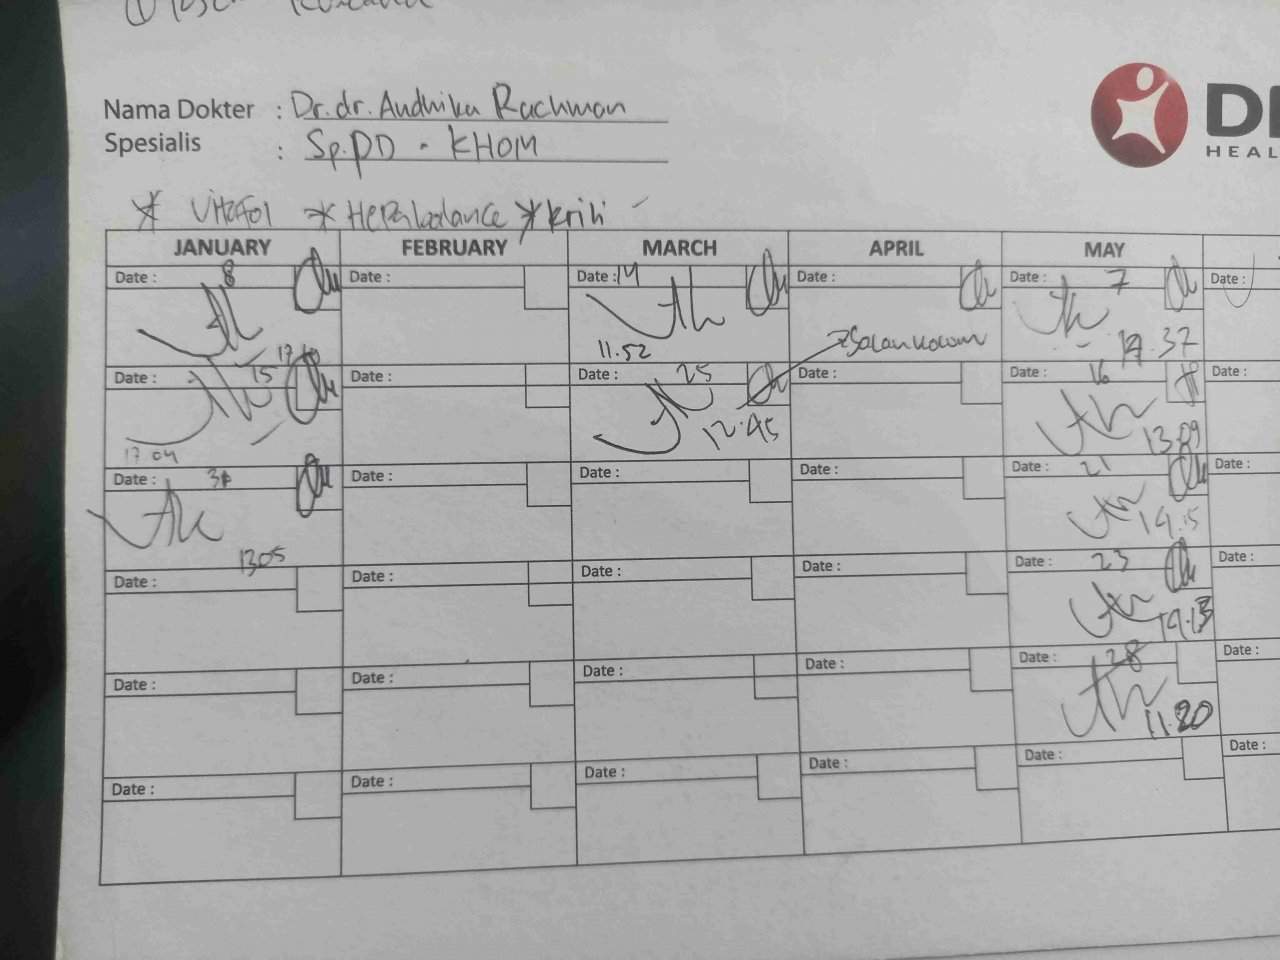 Nama Dokter : Dr. dr. Andhika Rachman
Spesialis : Sp.PD - KHOM
HEAL
* * Hepabalance *
JANUARY FEBRUARY MARCH APRIL MAY
Date : 8 Date : Date : 14 Date : Date : 7 Date :
17.10 11.52 19.37
Date : 15 Date : Date : 25 Date : Date : 16 Date :
17 04 12.45
Date : Date : Date : Date : Date : 21 Date :
1305 19.15
Date : Date : Date : Date : Date : 23 Date :
19.13
Date : Date : Date : Date : Date : 28 Date :
11.20
Date : Date : Date : Date : Date : Date :